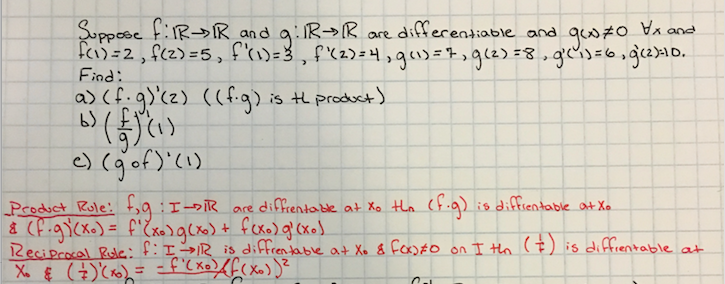 Suppose f: ℝ→ℝ and g: ℝ→ℝ are differentiable and g(x)≠0 ∀x and
f(1)=2, f(2)=5, f'(1)=3, f'(2)=4, g(1)=7, g(2)=8, g'(1)=6, g'(2)=10.
Find:
a) (f·g)'(2) ((f·g) is th product)
b) (f/g)'(1)
c) (g∘f)'(1)
Product Rule: f,g: I→ℝ are diffrentable at x₀ thn (f·g) is diffrentable at x₀
& (f·g)'(x₀) = f'(x₀)g(x₀) + f(x₀)g'(x₀)
Reciprocal Rule: f: I→ℝ is diffrentable at x₀ & f(x)≠0 on I thn (1/f) is diffrentable at
x₀ & (1/f)'(x₀) = -f'(x₀)/(f(x₀))²